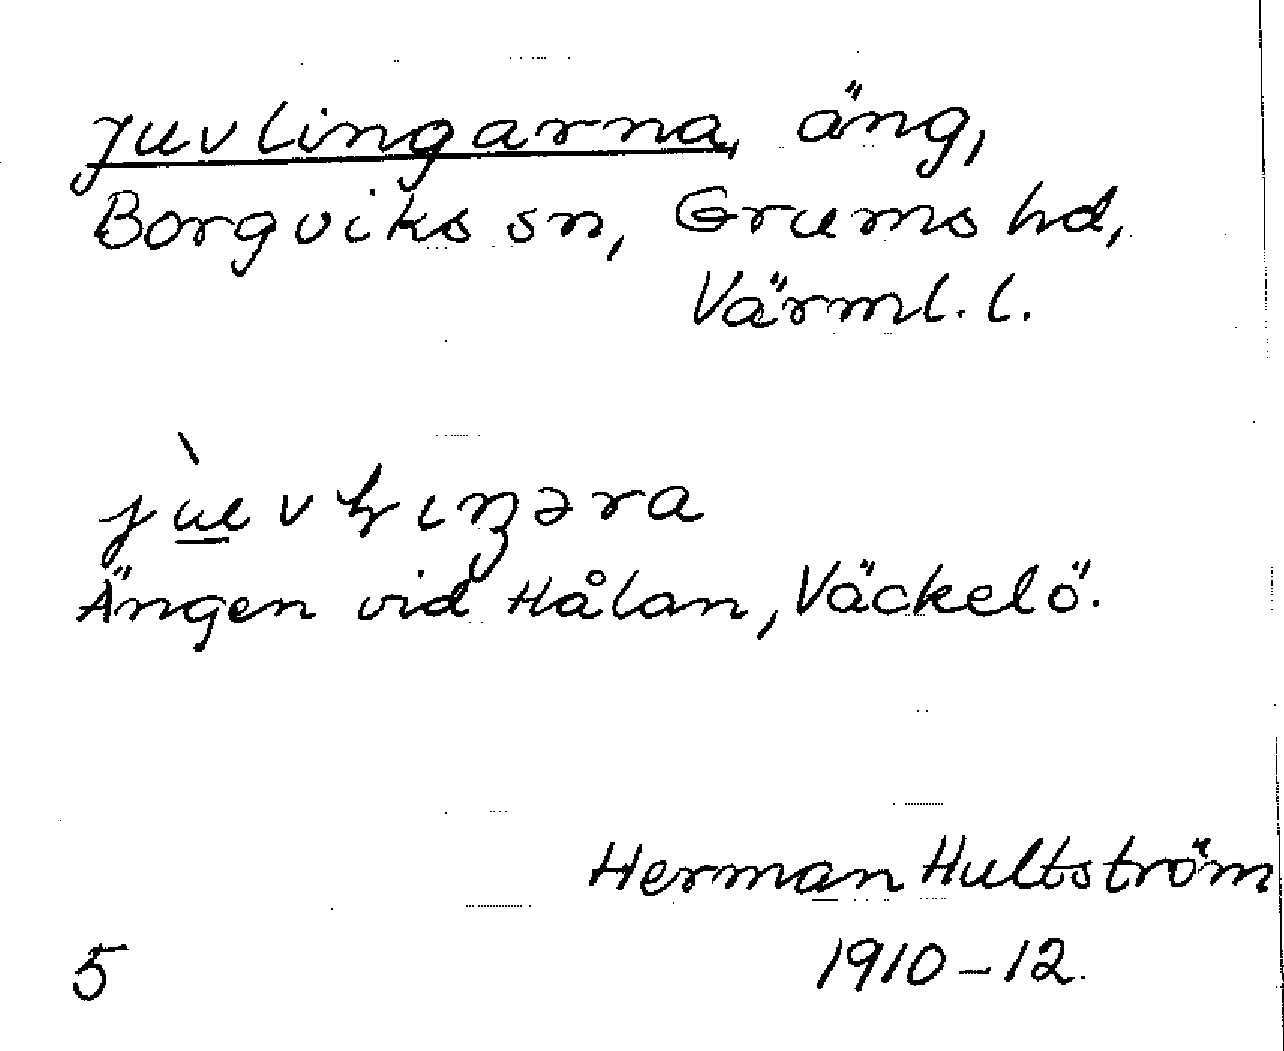 Juvlingarna, äng,
Borgviks sn, Grums hd,
Värml. l.
Ängen vid Hålan, Väckelö.
Herman Hultström
1910-12.
5